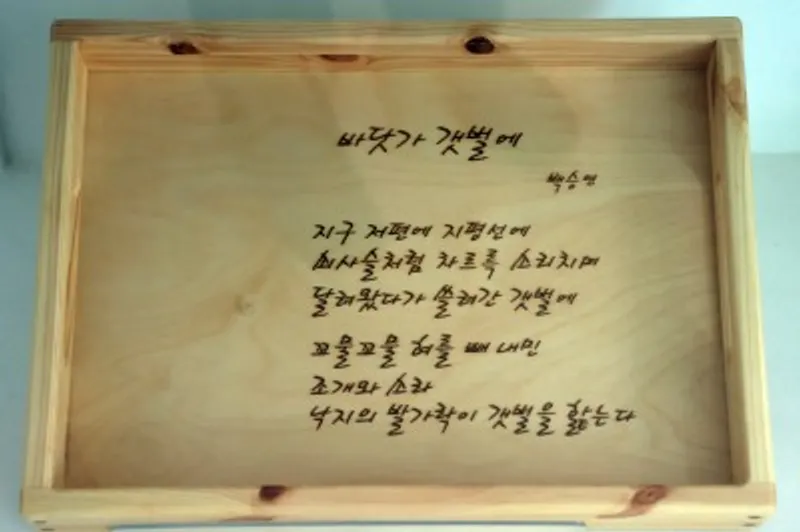 바닷가 갯벌에
백승연
지구 저편에 지평선에
쇠사슬처럼 차르륵 소리치며
달려왔다가 쓸려간 갯벌에
꼬물꼬물 혀를 빼 내민
조개와 소라
낙지의 발가락이 갯벌을 핥는다